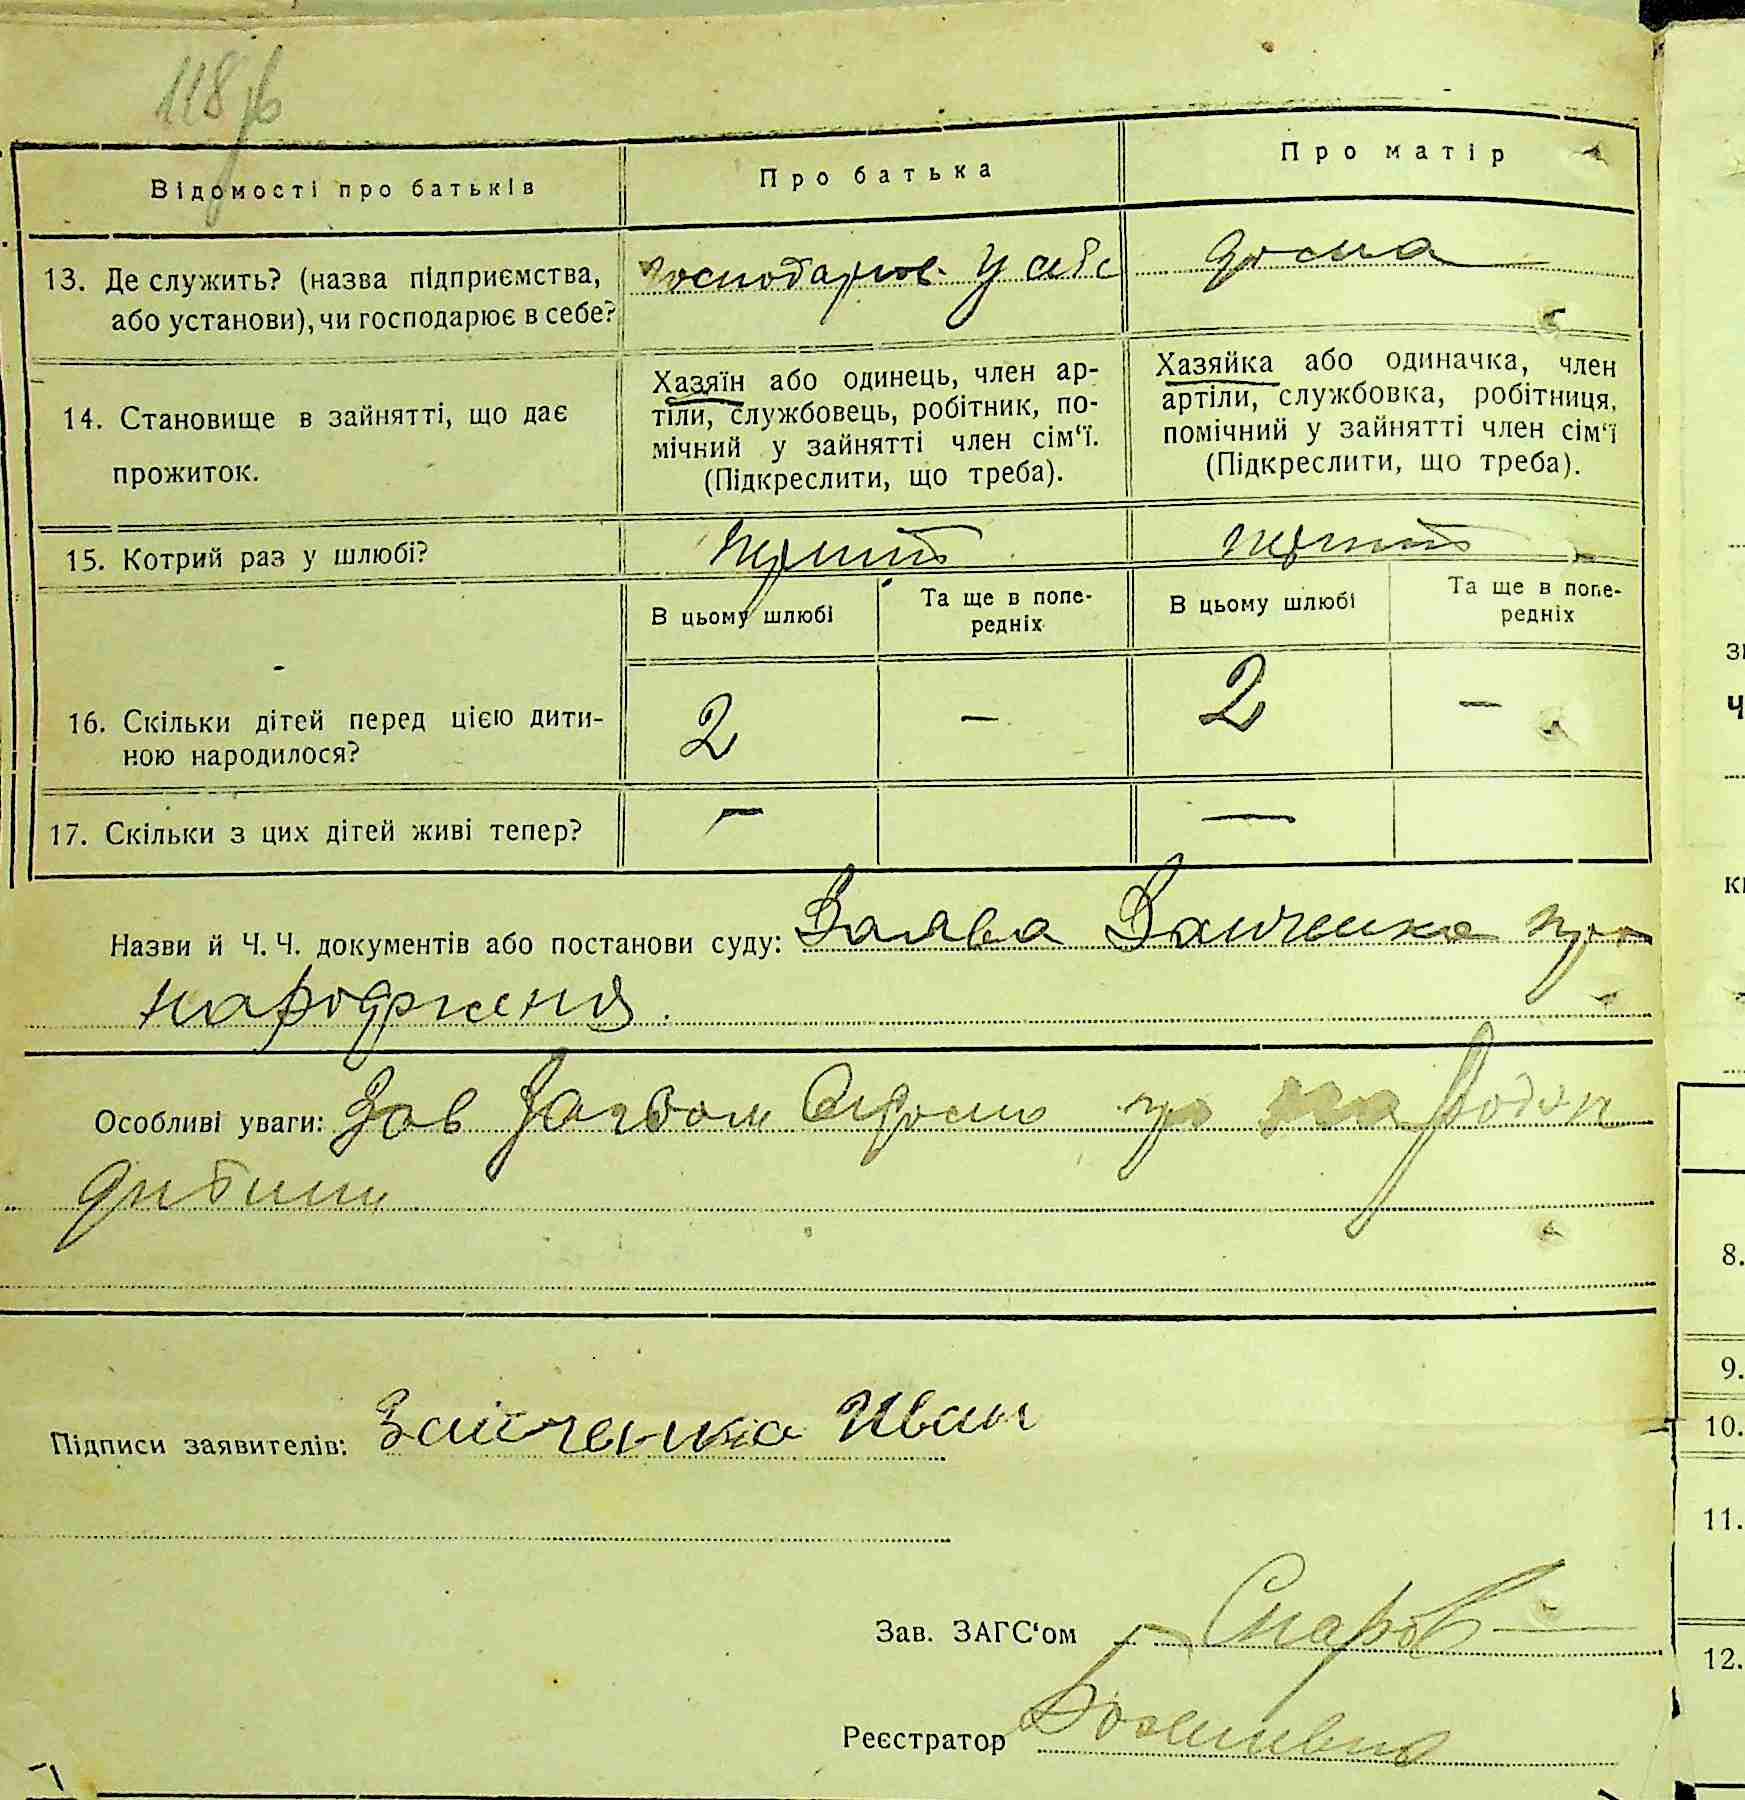 118
Відомості про батьків
Про батька
Про матір
13. Де служить? (назва підприємства,
або установи), чи господарює в себе?
господарює у себе
дома
14. Становище в зайнятті, що дає
прожиток.
Хазяїн або одинець, член ар-
тіли, службовець, робітник, по-
мічний у зайнятті член сім'ї.
(Підкреслити, що треба).
Хазяйка або одиначка, член
артіли, службовка, робітниця,
помічний у зайнятті член сім'ї
(Підкреслити, що треба).
15. Котрий раз у шлюбі?
перший
перший
В цьому шлюбі
Та ще в попе-
редніх
В цьому шлюбі
Та ще в попе-
редніх
16. Скільки дітей перед цією дити-
ною народилося?
2 – 2 –
17. Скільки з цих дітей живі тепер?
– –
Назви й Ч. Ч. документів або постанови суду: Заява Заиченка про
народження.
Особливі уваги: про
дитини
Підписи заявителів: Зайченко Иван
Зав. ЗАГС'ом
Реєстратор
8.
9.
10.
11.
12.